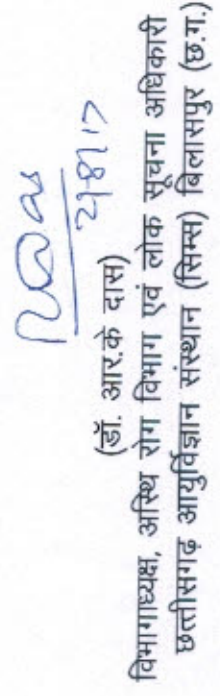 29/8/17
(डॉ. आर.के दास)
विभागाध्यक्ष, अस्थि रोग विभाग एवं लोक सूचना अधिकारी
छत्तीसगढ़ आयुर्विज्ञान संस्थान (सिम्स) बिलासपुर (छ.ग.)